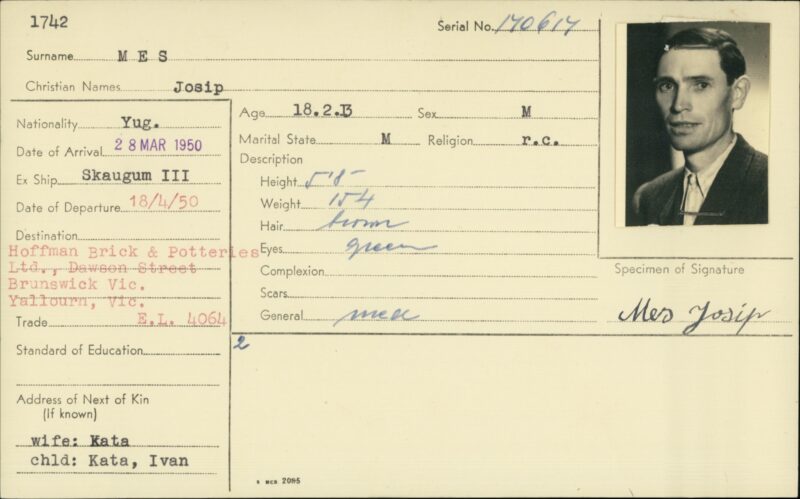 1742
Serial No. 170617
Surname MES
Christian Names Josip
Nationality Yug.
Date of Arrival 28 MAR 1950
Ex Ship Skaugum III
Date of Departure 18/4/50
Destination
Hoffman Brick & Potteries
Ltd., Dawson Street
Brunswick Vic.
Yallourn, Vic.
Trade E.L. 4064
Standard of Education
Address of Next of Kin
(If known)
wife: Kata
chld: Kata, Ivan
Age 18.2.13 Sex M
Marital State M Religion r.c.
Description
Height 5'8"
Weight 154
Hair brown
Eyes green
Complexion
Scars
General med
2
Specimen of Signature
Mes Josip
2095